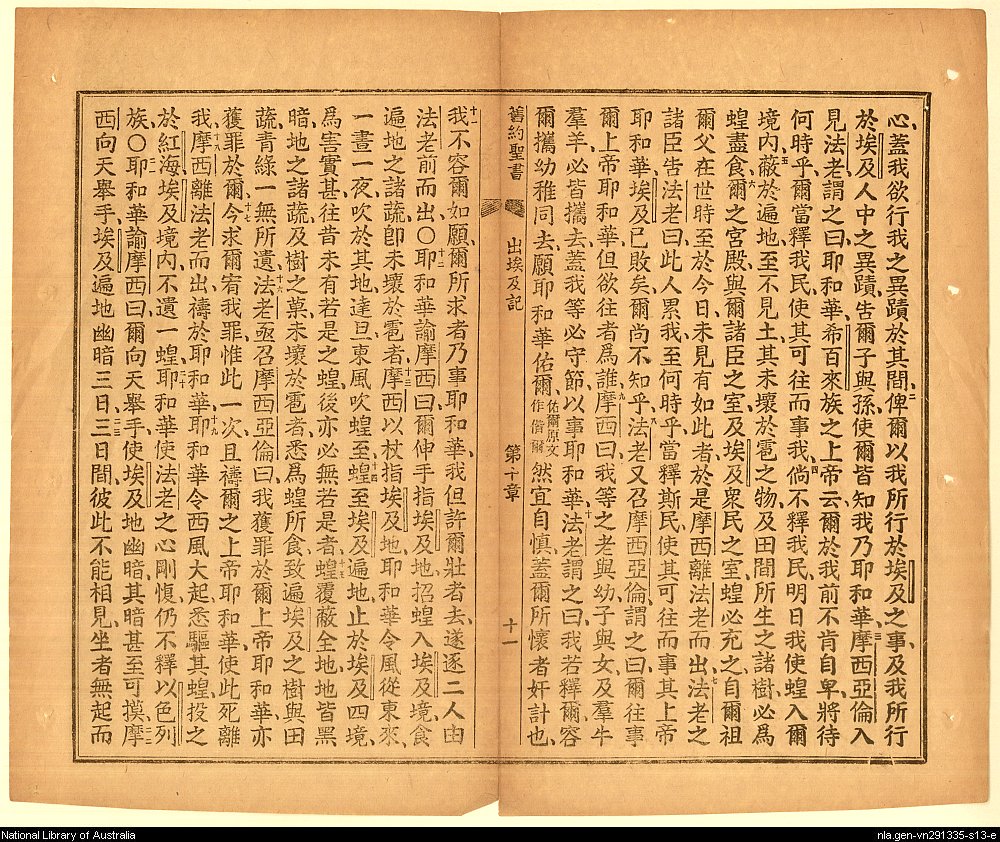 心蓋我欲行我之異蹟於其間二俾爾以我所行於埃及之事及我所行
於埃及人中之異蹟告爾子與孫使爾皆知我乃耶和華三摩西亞倫入
見法老謂之曰耶和華希百來族之上帝云爾於我前不肯自卑將待
何時乎爾當釋我民使其可往而事我四倘不釋我民明日我使蝗入爾
境內五蔽於遍地至不見土其未壞於雹之物及田間所生之諸樹必為
蝗盡食六爾之宮殿與爾諸臣之室及埃及衆民之室蝗必充之自爾祖
爾父在世時至於今日未見有如此者於是摩西離法老而出七法老之
諸臣告法老曰此人累我至何時乎當釋斯民使其可往而事其上帝
耶和華埃及已敗矣爾尚不知乎八法老又召摩西亞倫謂之曰爾往事
爾上帝耶和華但欲往者為誰九摩西曰我等之老與幼子與女及羣牛
羣羊必皆攜去蓋我等必守節以事耶和華十法老謂之曰我若釋爾容
爾攜幼稚同去願耶和華佑爾佑爾原文作偕爾然宜自慎蓋爾所懷者奸計也
舊約聖書 出埃及記 第十章 十一
十一我不容爾如願爾所求者乃事耶和華我但許爾壯者去遂逐二人由
法老前而出〇十二耶和華諭摩西曰爾伸手指埃及地招蝗入埃及境食
遍地之諸蔬卽未壞於雹者十三摩西以杖指埃及地耶和華令風從東來
一晝一夜吹於其地達旦東風吹蝗至十四蝗至埃及遍地止於埃及四境
為害實甚往昔未有若是之蝗後亦必無若是者十五蝗覆蔽全地地皆黑
暗地之諸蔬及樹之菓未壞於雹者悉為蝗所食致遍埃及之樹與田
蔬青綠一無所遺十六法老亟召摩西亞倫曰我獲罪於爾上帝耶和華亦
獲罪於爾十七今求爾宥我罪惟此一次且禱爾之上帝耶和華使此死離
我十八摩西離法老而出禱於耶和華十九耶和華令西風大起悉驅其蝗投之
於紅海埃及境內不遺一蝗二十耶和華使法老之心剛愎仍不釋以色列
族〇二一耶和華諭摩西曰爾向天舉手使埃及地幽暗其暗甚至可摸二二摩
西向天舉手埃及遍地幽暗三日二三三日間彼此不能相見坐者無起而
National Library of Australia
nla.gen-vn291335-s13-e